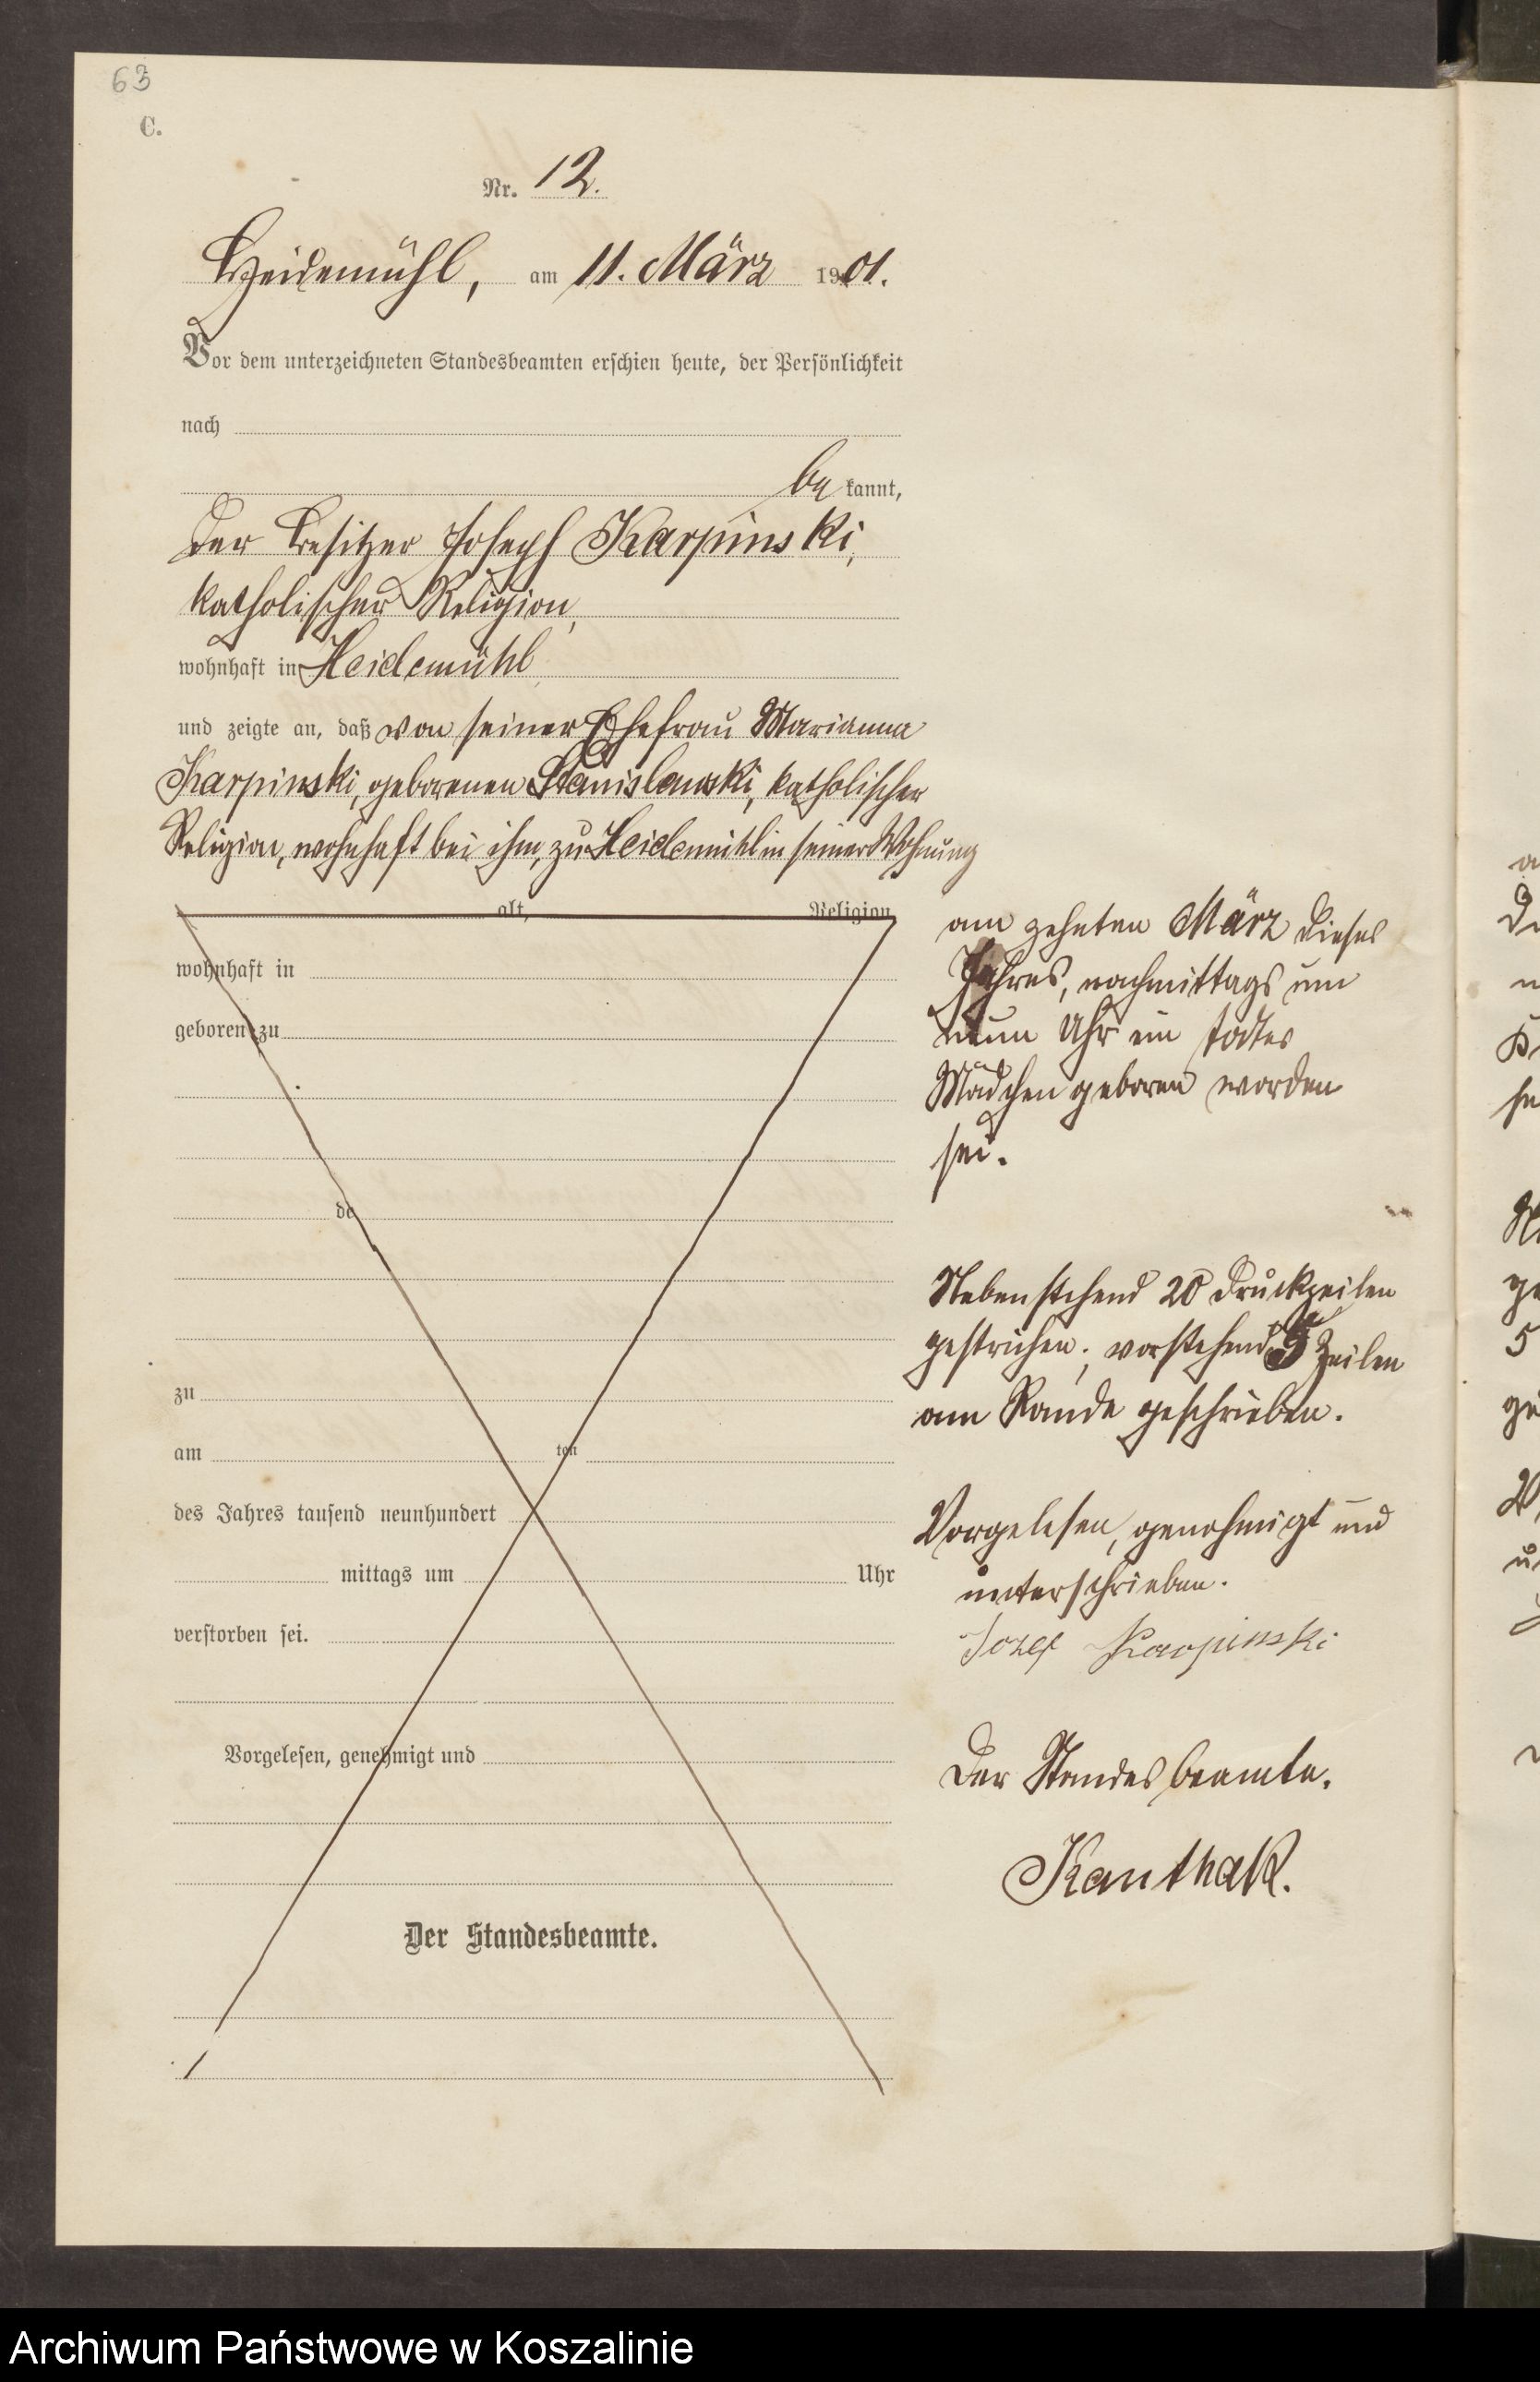 63
C.
Nr. 12.
Heidemühl, am 11. März 1901.
Vor dem unterzeichneten Standesbeamten erschien heute, der Persönlichkeit
nach
be kannt,
der Besitzer Joseph Karpinski,
katholischer Religion,
wohnhaft in Heidemühl
und zeigte an, daß von seiner Ehefrau Marianna
Karpinski, geborenen Stanislawski, katholischer
Religion, wohnhaft bei ihm, zu Heidemühl in seiner Wohnung
alt, Religion
wohnhaft in
geboren zu
de
zu
am ten
des Jahres tausend neunhundert
mittags um Uhr
verstorben sei.
Vorgelesen, genehmigt und
Der Standesbeamte.
am zehnten März dieses
Jahres, nachmittags um
neun Uhr ein todtes
Mädchen geboren worden
sei.
Nebenstehend 20 Druckzeilen
gestrichen; vorstehend 5 Zeilen
am Rande geschrieben.
Vorgelesen, genehmigt und
unterschrieben.
Jozef Karpinski
Der Standesbeamte.
Kanthak.
Archiwum Państwowe w Koszalinie